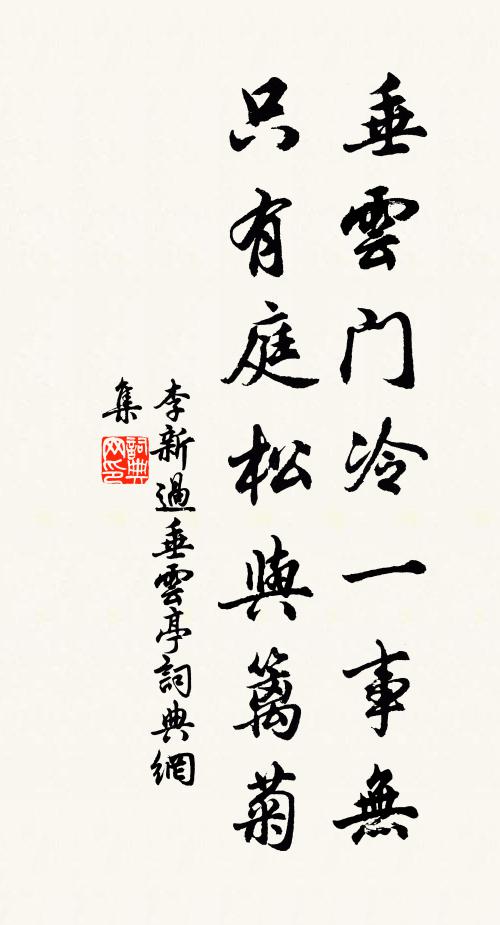 垂雲门冷一事無
只有庭松與籬菊
李新過垂雲亭詞典網
集
詞典
网印